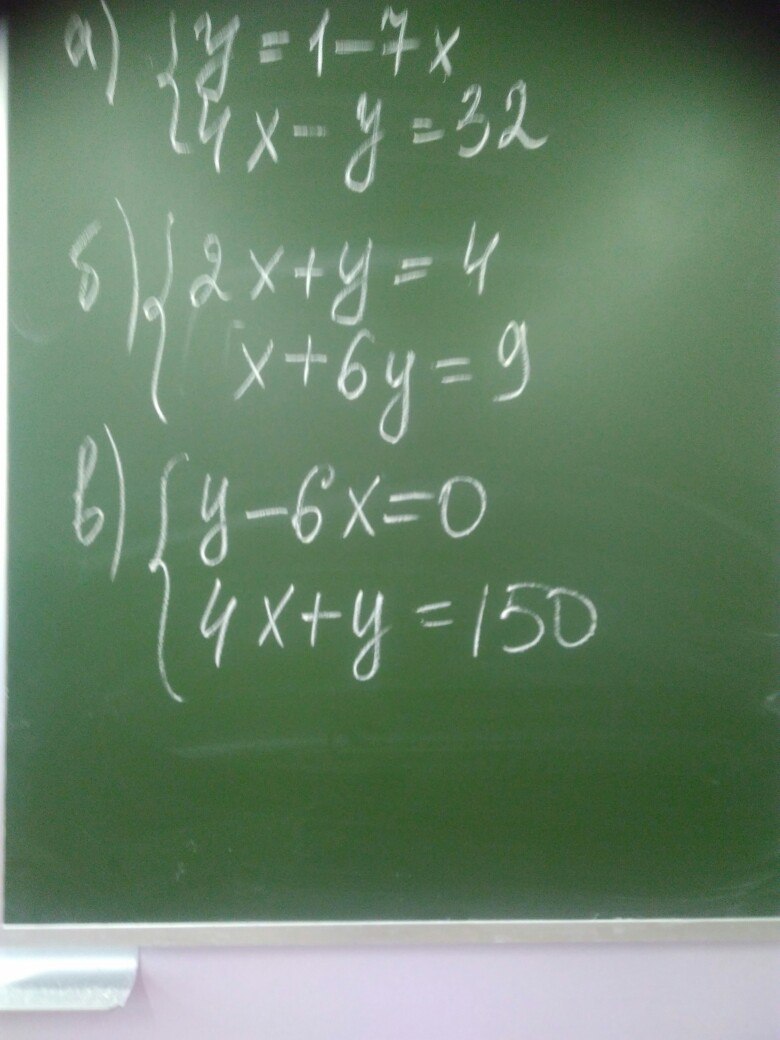 а) { y = 1 - 7x
4x - y = 32
б) { 2x + y = 4
x + 6y = 9
в) { y - 6x = 0
4x + y = 150